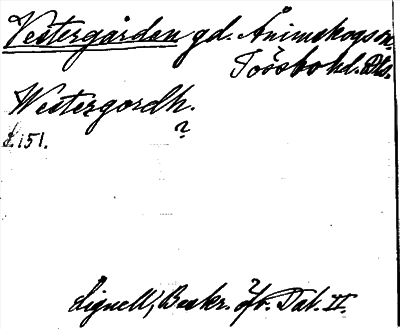 Vestergården gd. Ånimskogs sn.
Tössbo hd. Dls.
Westergordh.
?
£ 151.
Lignell, Beskr. öfv. Dal. II.